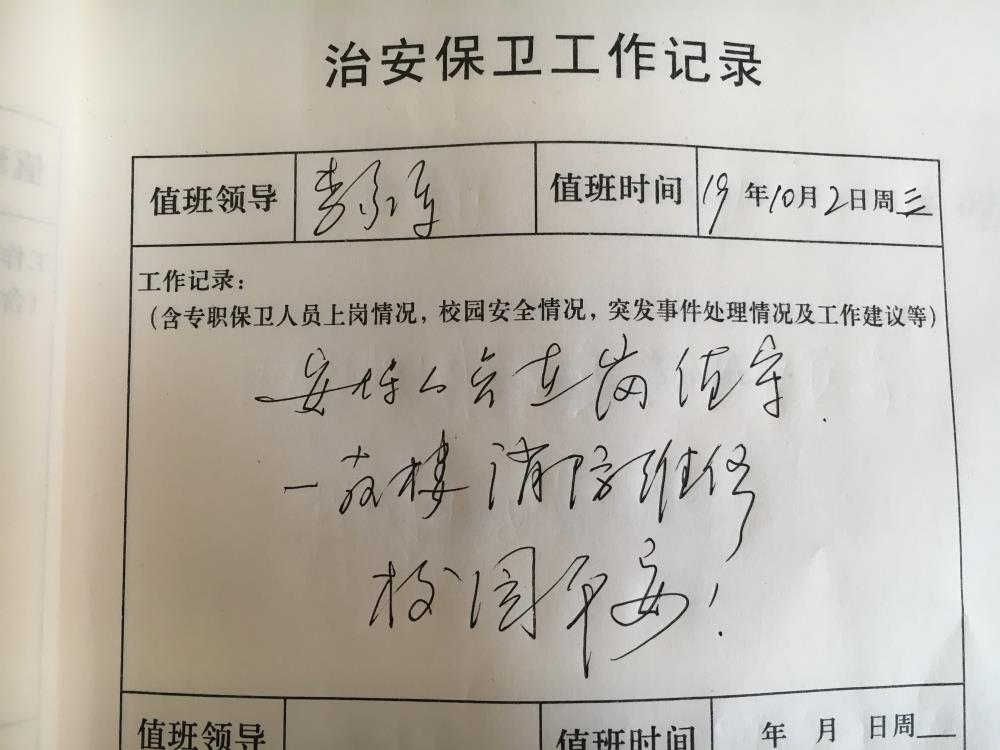 治安保卫工作记录
值班领导 李 值班时间 19年10月2日周三
工作记录：
（含专职保卫人员上岗情况，校园安全情况，突发事件处理情况及工作建议等）
安保人员在岗值守.
一教楼消防维修
校园平安！
值班领导 值班时间 年 月 日周